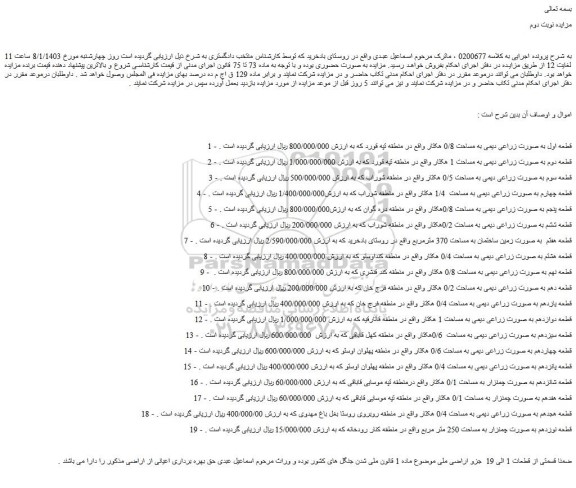 بسمه تعالی
مزایده نوبت دوم
به شرح پرونده اجرایی به کلاسه 0200677 ، ماترک مرحوم اسماعیل عبدی واقع در روستای بادخرید که توسط کارشناس منتخب دادگستری به شرح ذیل ارزیابی گردیده است روز چهارشنبه مورخ 8/1/1403 ساعت 11
لغایت 12 از طریق مزایده در دفتر اجرای احکام بفروش خواهد رسید. مزایده به صورت حضوری بوده و با توجه به ماده 73 تا 75 قانون اجرای مدنی از قیمت کارشناسی شروع و بالاترین پیشنهاد دهنده قیمت برنده مزایده
خواهد بود. داوطلبان می توانند درموعد مقرر در دفتر اجرای احکام مدنی حاضر و در مزایده شرکت نمایند و برابر ماده 129 ق اج م ده درصد بهای مزایده فی المجلس وصول خواهد شد . داوطلبان درموعد مقرر در
دفتر اجرای احکام مدنی حاضر و در مزایده شرکت نمایند و نیز می توانند 5 روز قبل از موعد مزایده از مورد مزایده بازدید بعمل آورده سپس در مزایده شرکت نمایند .
اموال و اوصاف آن بدین شرح است :
قطعه اول به صورت زراعی دیمی به مساحت 0/8 هکتار واقع در منطقه تپه قورد که به ارزش 800/000/000 ریال ارزیابی گردیده است . - 1
قطعه دوم به صورت زراعی دیمی به مساحت 1 هکتار واقع در منطقه تپه قورد که به ارزش 1/000/000/000 ریال ارزیابی گردیده است . - 2
قطعه سوم به صورت زراعی دیمی به مساحت 0/5 هکتار واقع در منطقه شوراب که به ارزش 500/000/000 ریال ارزیابی گردیده است . - 3
قطعه چهارم به صورت زراعی دیمی به مساحت 1/4 هکتار واقع در منطقه شوراب که به ارزش 1/400/000/000 ریال ارزیابی گردیده است . - 4
قطعه پنجم به صورت زراعی دیمی به مساحت 0/8هکتار واقع در منطقه دره گوان که به ارزش 800/000/000 ریال ارزیابی گردیده است . - 5
قطعه ششم به صورت زراعی دیمی به مساحت 0/2هکتار واقع در منطقه شوراب که به ارزش 200/000/000 ریال ارزیابی گردیده است . - 6
قطعه هفتم به صورت زمین ساختمان به مساحت 370 مترمربع واقع در روستای بادخرید که به ارزش 2/590/000/000 ریال ارزیابی گردیده است . - 7
قطعه هشتم به صورت زراعی دیمی به مساحت 0/4 هکتار واقع در منطقه که به ارزش 400/000/000 ریال ارزیابی گردیده است . - 8
قطعه نهم به صورت زراعی دیمی به مساحت 0/8 هکتار واقع در منطقه کند که به ارزش 800/000/000 ریال ارزیابی گردیده است . - 9
قطعه دهم به صورت زراعی دیمی به مساحت 0/2 هکتار واقع در منطقه فرج خان که به ارزش 200/000/000 ریال ارزیابی گردیده است . - 10
قطعه یازدهم به صورت زراعی دیمی به مساحت 0/4 هکتار واقع در منطقه فرج خان که به ارزش 400/000/000 ریال ارزیابی گردیده است . - 11
قطعه دوازدهم به صورت زراعی دیمی به مساحت 1 هکتار واقع در منطقه که به ارزش 1/000/000/000 ریال ارزیابی گردیده است . - 12
قطعه سیزدهم به صورت زراعی دیمی به مساحت 0/6هکتار واقع در منطقه کهل قاباقی که به ارزش 600/000/000 ریال ارزیابی گردیده است . - 13
قطعه چهاردهم به صورت زراعی دیمی به مساحت 0/6 هکتار واقع در منطقه پهلوان اوستو که به ارزش 600/000/000 ریال ارزیابی گردیده است - 14
قطعه یازدهم به صورت زراعی دیمی به مساحت 0/4 هکتار واقع در منطقه پهلوان اوستو که به ارزش 400/000/000 ریال ارزیابی گردیده است . - 15
قطعه شانزدهم به صورت چمنزار به مساحت 0/1 هکتار واقع درمنطقه تپه موسایی قاباقی که به ارزش 60/000/000 ریال ارزیابی گردیده است . - 16
قطعه هفدهم به صورت چمنزار به مساحت 0/1 هکتار واقع در منطقه تپه موسایی قاباقی که به ارزش 60/000/000 ریال ارزیابی گردیده است . - 17
قطعه هجدهم به صورت زراعی دیمی به مساحت 0/4 هکتار واقع در منطقه روبروی روستا بغل باغ مهدوی که به ارزش 400/000/00 ریال ارزیابی گردیده است . - 18
قطعه نوزدهم به صورت چمنزار به مساحت 250 متر مربع واقع در منطقه کنار رودخانه که به ارزش 15/000/000 ریال ارزیابی گردیده است . - 19
ضمنا قسمتی از قطعات 1 الی 19 جزو اراضی ملی موضوع ماده 1 قانون ملی شدن جنگل های کشور بوده و وراث مرحوم اسماعیل عبدی حق بهره برداری اعیانی از اراضی مذکور را دارا می باشند .
ParsNamadData
پایگاه اطلاع رسانی مناقصه و مزایده
۰۲۱-۸۸۳۴۹۶۷۰-۵